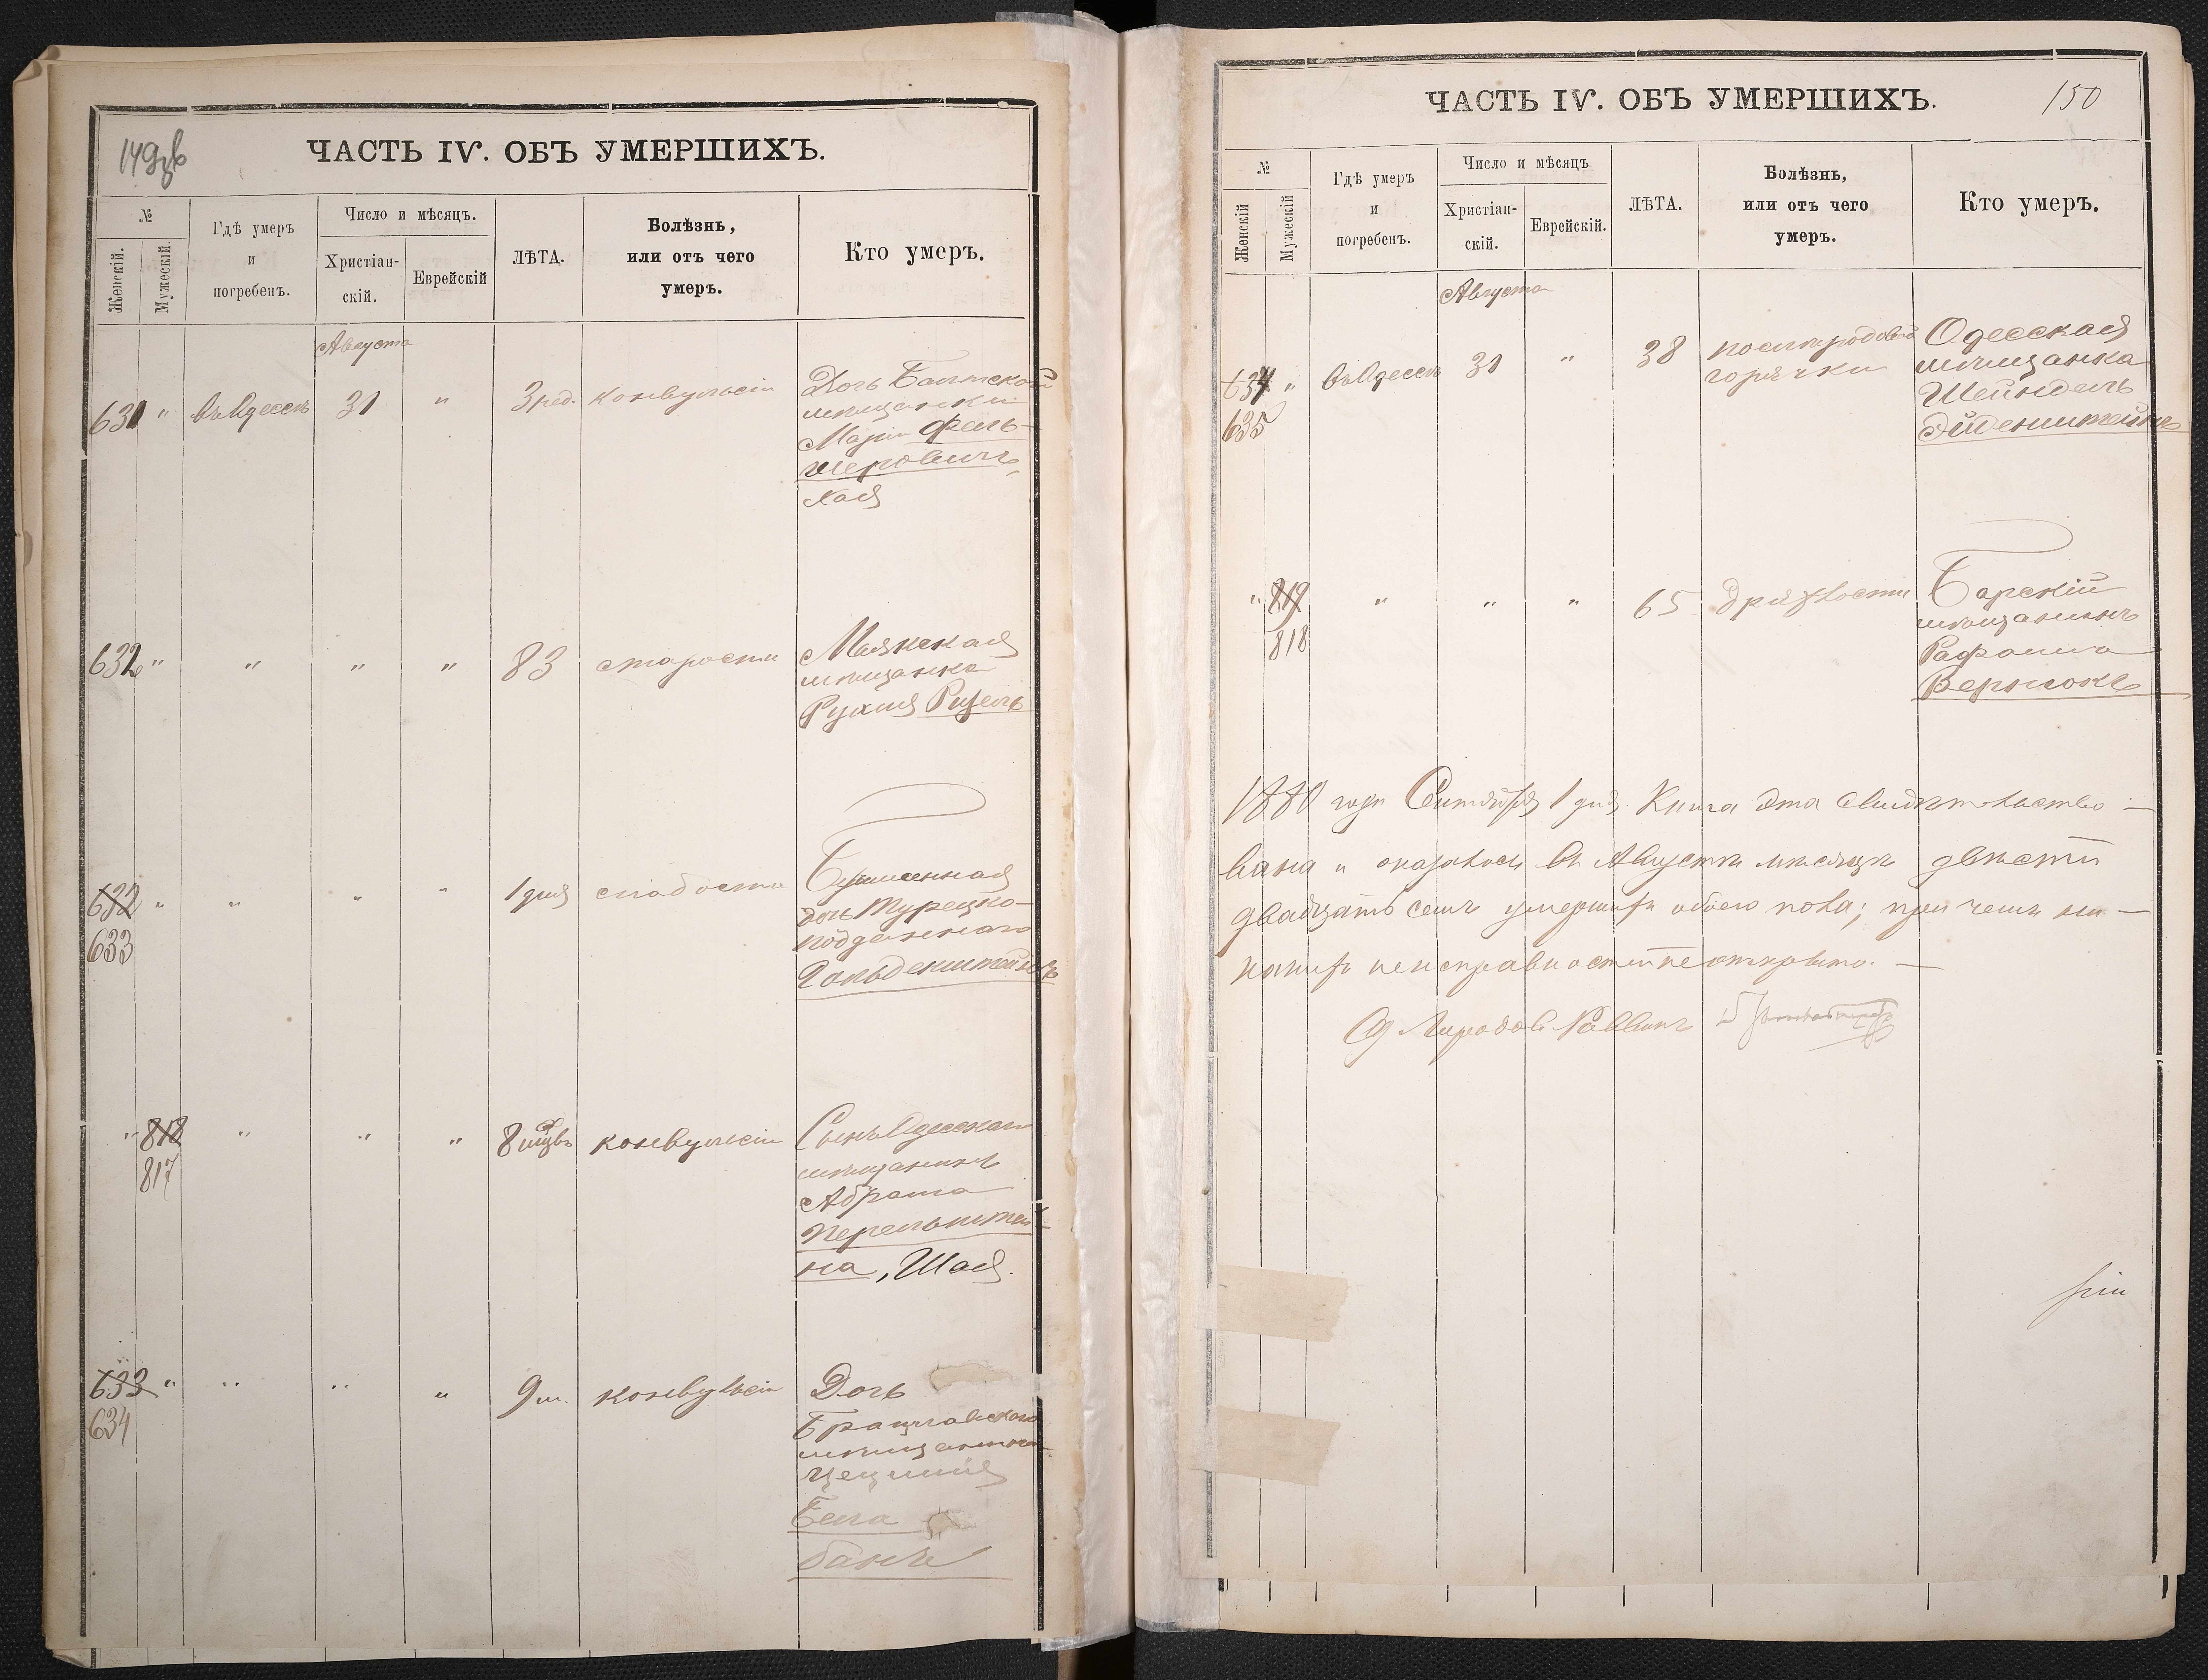 ЧАСТЬ IV. ОБЪ УМЕРШИХЪ.
№
Женскій.
Мужескій.
Гдѣ умеръ
и
погребенъ.
Число и мѣсяцъ.
Христіан-
скій.
Еврейскій
ЛѢТА.
Болѣзнь,
или отъ чего
умеръ.
Кто умеръ.
Августа
631 " въ Одессѣ 31 " 3 нед. конвульсіи
Дочь Балтской
мѣщанки
Маріи Фель-
церовичъ,
Хая
632 " " " " 83 старости
Маякская
мѣщанка
Рухля
632 " " " " 1 дня слабости
633
дочь Турецко-
подданнаго
Гольденштейнъ
" 818 " " " 8 мцвъ конвульсіи
817
Сынъ Одесскаго
мѣщанина
Абрама
Перельштей-
на, Шая.
633 " " " " 9 м. конвульсіи
634
Дочь
Брацлавскаго
мѣщанина
Бейла
ЧАСТЬ IV. ОБЪ УМЕРШИХЪ.
150
№
Женскій
Мужескій
Гдѣ умеръ
и
погребенъ.
Число и мѣсяцъ
Христіан-
скій.
Еврейскій.
ЛѢТА.
Болѣзнь,
или отъ чего
умеръ.
Кто умеръ.
Августа
634 " въ Одессѣ 31 " 38 послеродовой
635
горячки
Одесская
мѣщанка
Шейндель
Эйденштейнъ
" 819 " " " 65 дряхлости
818
Барскій
мѣщанинъ
Рафаилъ
1880 года Сентября 1 дня. Книга эта свидѣтельство-
вана и оказалось въ Августѣ мѣсяцѣ двѣсти
двадцать семь умершихъ обоего пола; при чемъ ни-
какихъ неисправностей не открыто. —
Раввинъ